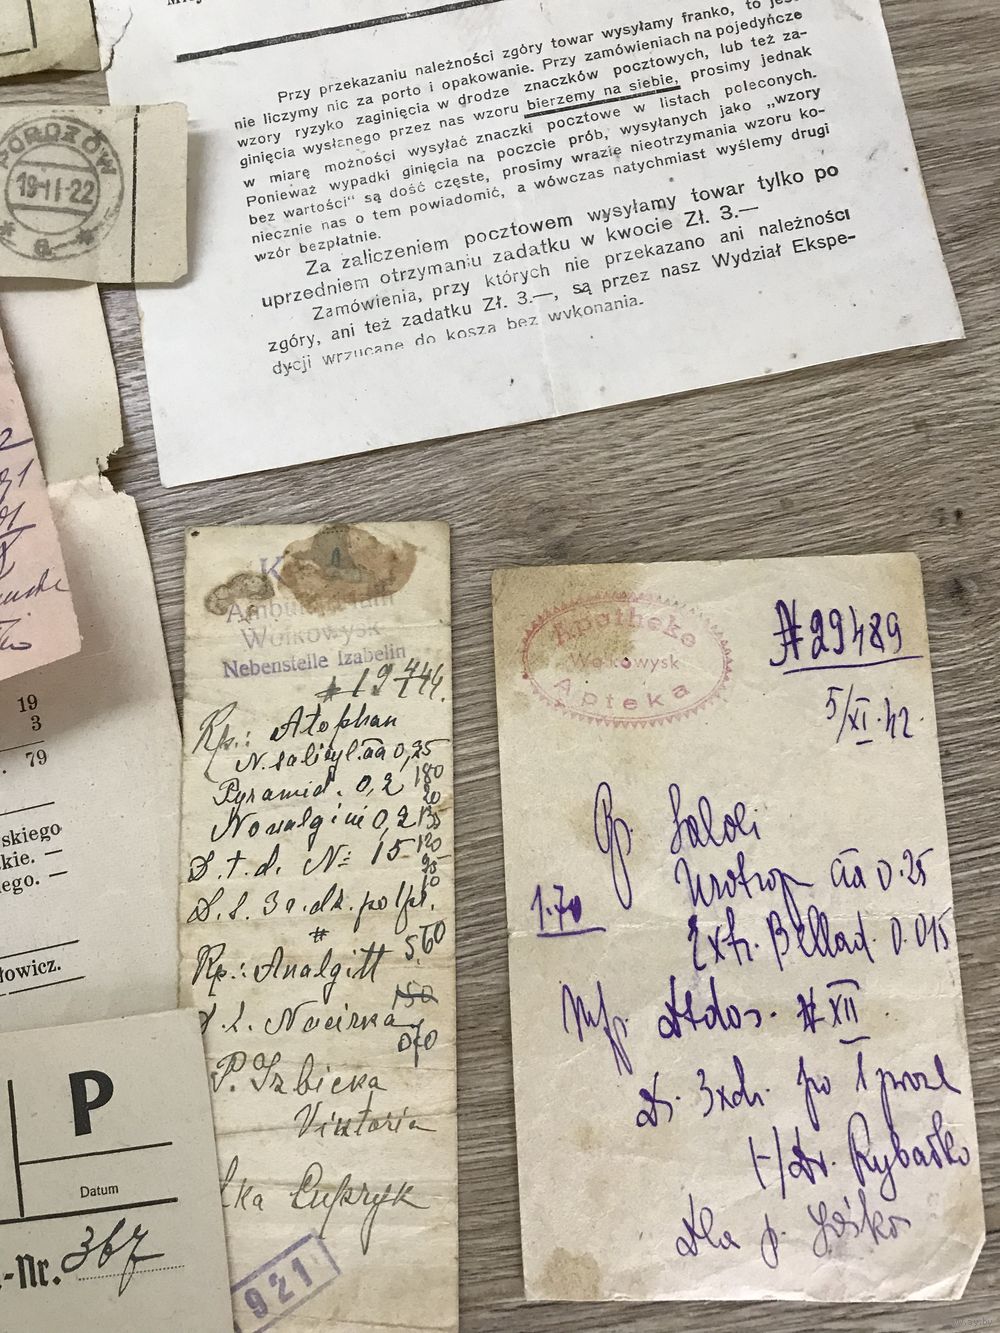 Przy przekazaniu należności zgóry towar wysyłamy franko, to jest
nie liczymy nic za porto i opakowanie. Przy zamówieniach na pojedyńcze
wzory ryzyko zaginięcia w drodze znaczków pocztowych, lub też za-
ginięcia wysłanego przez nas wzoru bierzemy na siebie, prosimy jednak
w miarę możności wysyłać znaczki pocztowe w listach poleconych.
Ponieważ wypadki ginięcia na poczcie prób, wysyłanych jako „wzory
bez wartości“ są dość częste, prosimy wrazie nieotrzymania wzoru ko-
niecznie nas o tem powiadomić, a wówczas natychmiast wyślemy drugi
wzór bezpłatnie.
Za zaliczeniem pocztowem wysyłamy towar tylko po
uprzedniem otrzymaniu zadatku w kwocie Zł. 3.—
Zamówienia, przy których nie przekazano ani należności
zgóry, ani też zadatku Zł. 3.—, są przez nasz Wydział Ekspe-
dycji wrzucane do kosza bez wykonania.
POROZÓW
19·II-22
* a.— *
19
3
. 79
skiego
kie. —
ego. —
łowicz.
P
Datum
-Nr. 367
Wolkowysk
Nebenstelle Izabelin
# 19444
Rp.: Atophan
N. salicyl. aa 0,25
Pyramid. 0,2
180
20
Novalgini 0,2
135
D. t. d. № 15
120
25
10
D. S. 3 a. dk. po 1 pr.
#
5.60
Rp.: Analgitt
150
D. S. Nacirka
070
P. Izbicka
Viktoria
921
Apotheke
Wolkowysk
Apteka
# 29489
5/XI·42.
Rp. Saloli
Urotrop aa 0.25
1.70
Extr. Bellad. 0.015
Mf. Dtdos. # XII
DS. 3xdz. po 1 prosz
(-) Dr. Rybałko
Dla p.